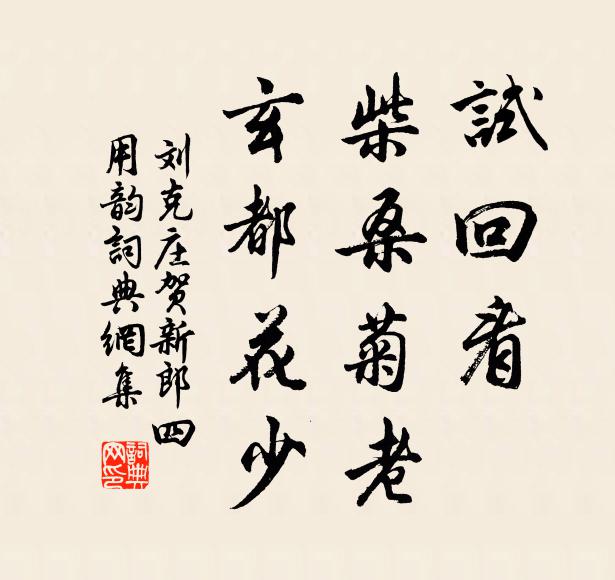 試回看
柴桑菊老
玄都花少
刘克庄贺新郎四
用韵詞典網集
詞典
网印